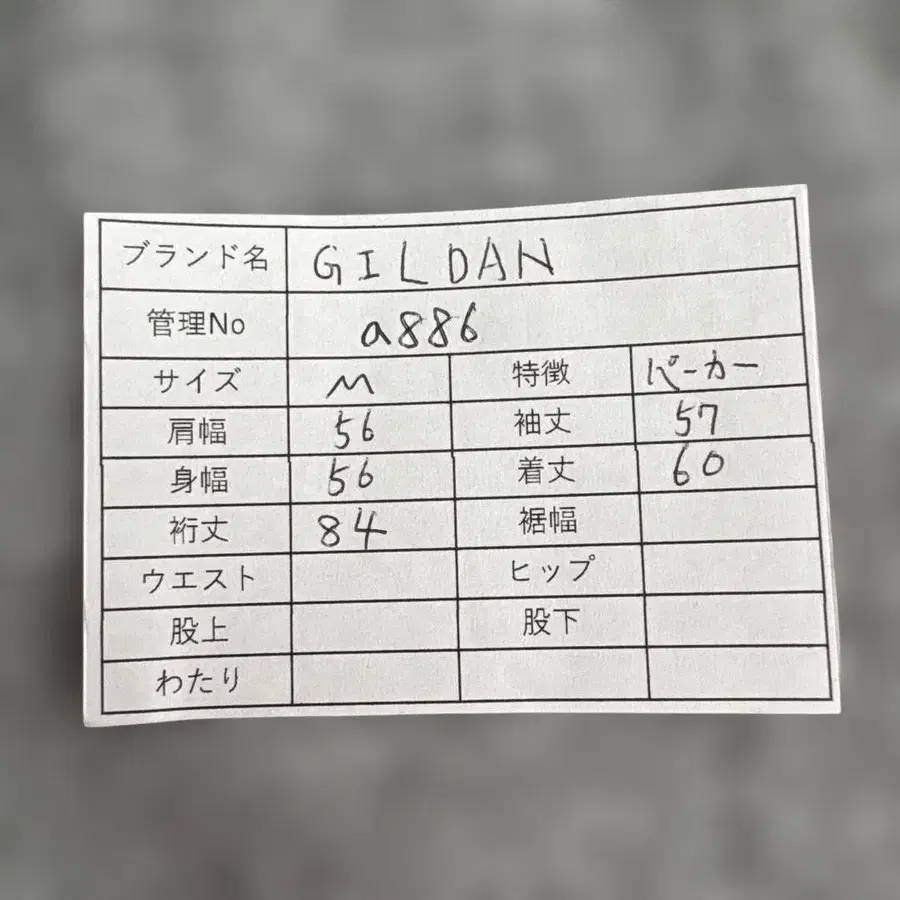 ブランド名 GILDAN
管理No a886
サイズ M 特徴 パーカー
肩幅 56 袖丈 57
身幅 56 着丈 60
裄丈 84 裾幅
ウエスト ヒップ
股上 股下
わたり